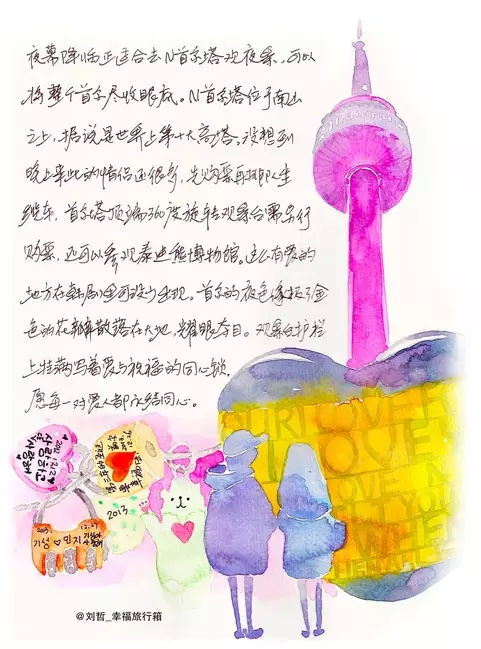 夜幕降临正适合去N首尔塔观夜景，可以
将整个首尔尽收眼底。N首尔塔位于南山
之上，据说是世界上第十大高塔。没想到
晚上来此的情侣还很多，先购票再排队坐
缆车，首尔塔顶端360度旋转观景台需另行
购票，还可以参观泰迪熊博物馆。这么有爱的
地方在韩剧里可没少出现。首尔的夜色像极了金
色的花瓣散落在大地，耀眼夺目。观景台护栏
上挂满写着爱与祝福的同心锁，
愿每一对爱人都永结同心。
사랑해
2013
기성♡민지
OUR LOVE FO
LOVE
LOVE
WHEN
@刘哲_幸福旅行箱